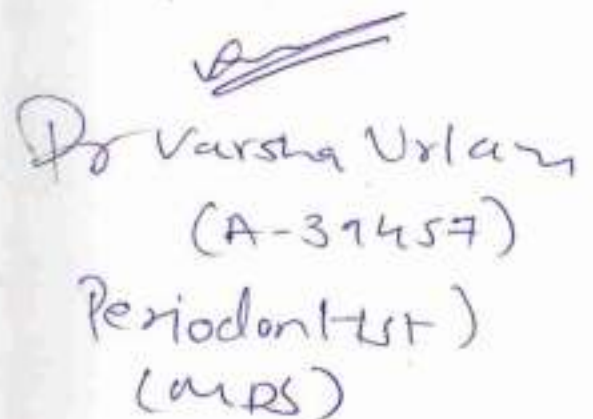 Dr Varsha Urlam
(A-39457)
Periodontist)
(MDS)